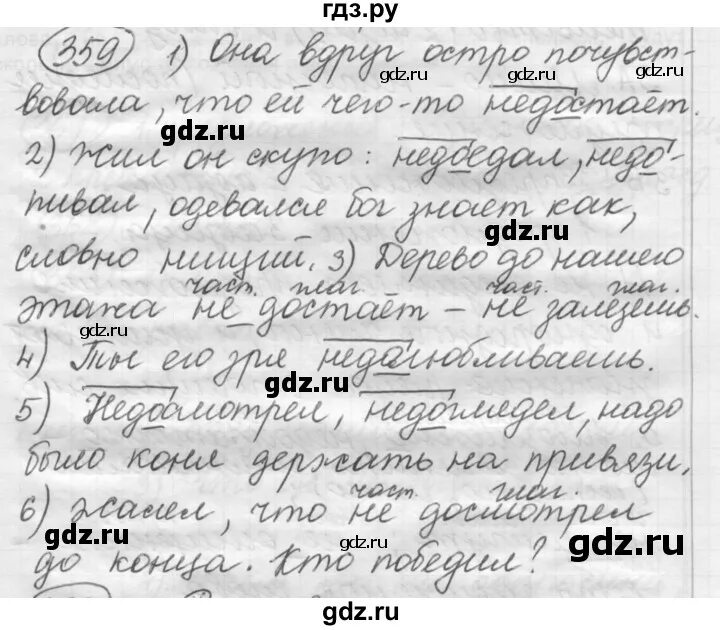 гдз.ру
359 1) Она вдруг остро почувст-
gdz.ru gdz.ru
вовала, что ей чего-то недостаёт.
gdz.ru
2) Жил он скупо: недоедал, недо-
gdz.ru
пивал, одевался бог знает как,
gdz.ru
словно нищий. 3) Дерево до нашего
част. глаг. част. глаг.
этажа не достаёт – не залезешь.
gdz.ru gdz.ru
4) Ты его зря недолюбливаешь.
gdz.ru
5) Недосмотрел, недоглядел, надо
gdz.ru
было коня держать на привязи.
gdz.ru
част. глаг.
6) Жалел, что не досмотрел
gdz.ru gdz.ru
до конца. Кто победил?
gdz.ru
gdz.ru